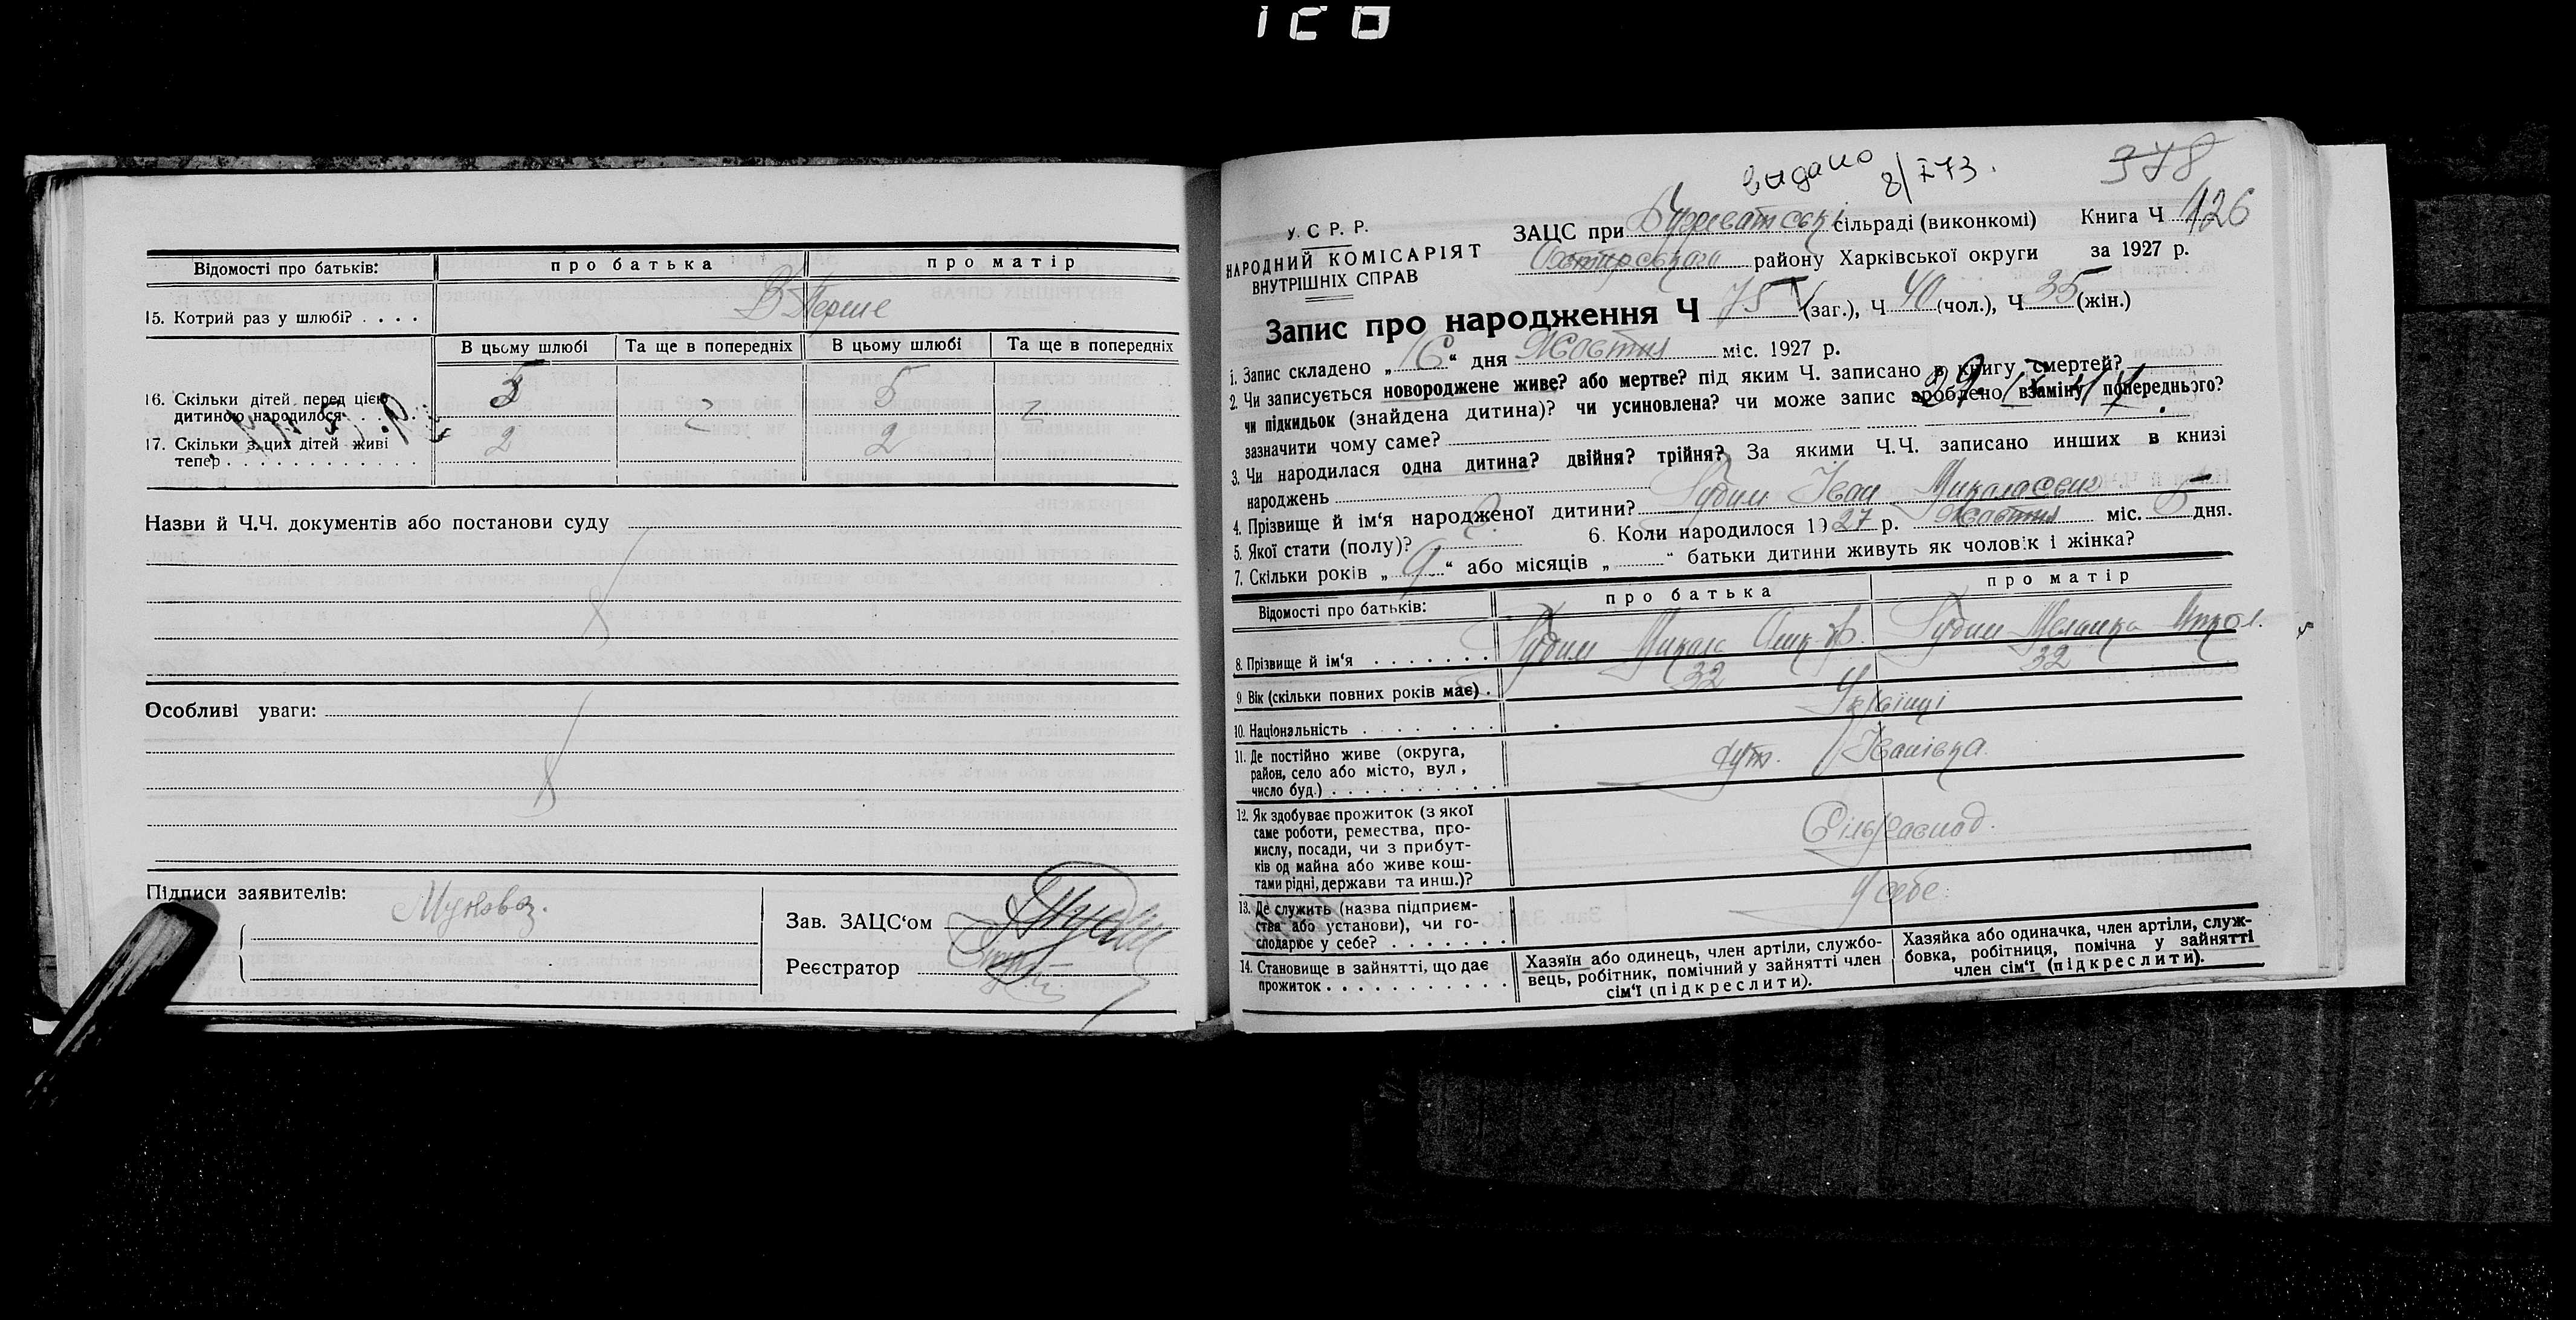 Відомості про батьків: про батька про матір
15. Котрий раз у шлюбі? . . . . В Перше
В цьому шлюбі Та ще в попередніх В цьому шлюбі Та ще в попередніх
16. Скільки дітей перед цією
дитиною народилося. . 5 5
17. Скільки з цих дітей живі
тепер . . . . . . . . . . . . . 2 2
Назви й Ч.Ч. документів або постанови суду
Особливі уваги:
Підписи заявителів:
Зав. ЗАЦС‘ом
Реєстратор
видано
8/I 73.
378
У. С Р. Р.
НАРОДНИЙ КОМІСАРІЯТ
ВНУТРІШНІХ СПРАВ
ЗАЦС при сільраді (виконкомі) Книга Ч 126
Охтирського району Харківської округи за 1927 р.
Запис про народження Ч 75 (заг.), Ч 40 (чол.), Ч 35 (жін.)
1. Запис складено „ 6 “ дня Жовтня міс. 1927 р.
2. Чи записується новороджене живе? або мертве? під яким Ч. записано в книгу смертей?
чи підкидьок (знайдена дитина)? чи усиновлена? чи може запис зроблено взаміну попереднього?
зазначити чому саме?
3. Чи народилася одна дитина? двійня? трійня? За якими Ч.Ч. записано инших в книзі
народжень
4. Прізвище й ім‘я народженої дитини? Іван Миколаєвич
5. Якої стати (полу)? 6. Коли народилося 1927 р. Жовтня міс. 5 дня.
7. Скільки років „ 9 “ або місяців „ “ батьки дитини живуть як чоловік і жінка?
Відомості про батьків: про батька про матір
8. Прізвище й ім‘я . . . . . . . Микола
9 Вік (скільки повних років має) . 32 32
10. Національність . . . . . . . Українці
11. Де постійно живе (округа,
район, село або місто, вул,
число буд.) . . . . . . . . . . хут. Іванівка
12. Як здобуває прожиток (з якої
саме роботи, ремества, про-
мислу, посади, чи з прибут-
ків од майна або живе кош-
тами рідні, держави та инш.)?
13. Де служить (назва підприєм-
ства або установи), чи го-
сподарює у себе? . . . . . . . У себе
14. Становище в зайнятті, що дає
прожиток . . . . . . . . . . .
Хазяїн або одинець, член артіли, службо-
вець, робітник, помічний у зайнятті член
сім‘ї (підкреслити).
Хазяйка або одиначка, член артіли, служ-
бовка, робітниця, помічна у зайнятті
член сім‘ї (підкреслити).